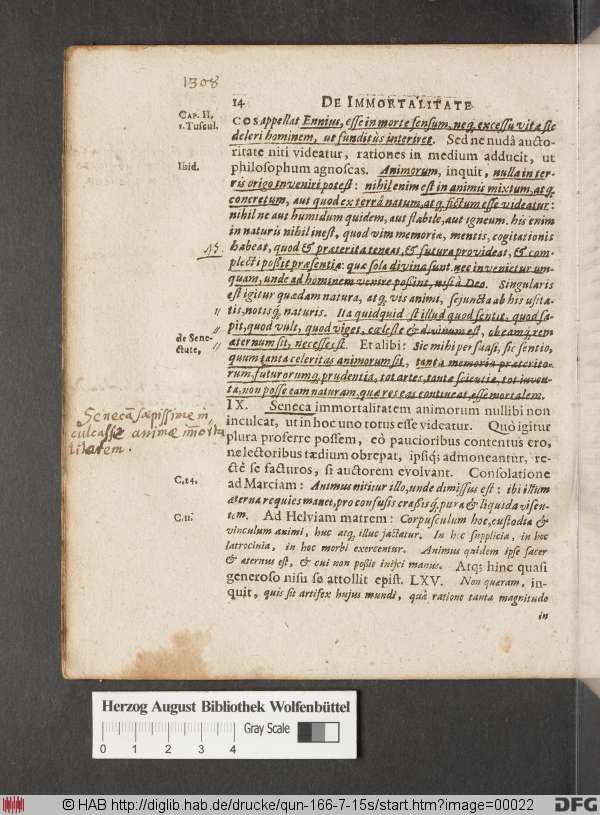 1308
14 DE IMMORTALITATE
CAP. II.
1. Tuscul.
cos appellat Ennius, esse in morte sensum, neq; excessu vitæ sic
deleri hominem, ut funditùs interiret. Sed ne nudâ aucto-
ritate niti videatur, rationes in medium adducit, ut
Ibid.
philosophum agnoscas. Animorum, inquit, nulla in ter-
ris origo inveniri potest: nihil enim est in animis mixtum, atq;
concretum, aut quod ex terrâ natum, atq; fictum esse videatur:
nihil ne aut humidum quidem, aut flabile, aut igneum. his enim
in naturis nihil inest, quod vim memoriæ, mentis, cogitationis
habeat, quod & præterita teneat, & futura provideat, & com-
plecti possit præsentia: quæ sola divina sunt. nec invenietur um-
quam, unde ad hominem venire possint, nisi à Deo. Singularis
est igitur quædam natura, atq; vis animi, sejuncta ab his usita-
tis, notisq; naturis. Ita quidquid est illud quod sentit, quod sa-
pit, quod vult, quod viget, cæleste & divinum est, ob eamq; rem
de Sene-
ctute,
æternum sit, necesse est. Et alibi: Sic mihi persuasi, sic sentio,
quum tanta celeritas animorum sit, tanta memoria præterito-
rum, futurorumq; prudentia, tot artes, tantæ scientiæ, tot inven-
ta, non posse eam naturam, quæ res eas contineat, esse mortalem.
Senecã sæpissime in
culcasse animæ im̃orta
litatem.
IX. Seneca immortalitatem animorum nullibi non
inculcat, ut in hoc uno totus esse videatur. Quò igitur
plura proferre possem, eò paucioribus contentus ero,
ne lectoribus tædium obrepat, ipsiq; admoneantur, re-
ctè se facturos, si auctorem evolvant. Consolatione
C. 24.
ad Marciam: Animus nititur illo, unde dimissus est: ibi illum
æterna requies manet, pro confusis crassisq;, pura & liquida visen-
C. 11.
tem. Ad Helviam matrem: Corpusculum hoc, custodia &
vinculum animi, huc atq; illuc jactatur. In hoc supplicia, in hoc
latrocinia, in hoc morbi exercentur. Animus quidem ipse sacer
& æternus est, & cui non possit injici manus. Atq; hinc quasi
generoso nisu se attollit epist. LXV. Non quæram, in-
quit, quis sit artifex hujus mundi, quâ ratione tanta magnitudo
in
Herzog August Bibliothek Wolfenbüttel
0 1 2 3 4 Gray Scale
© HAB http://diglib.hab.de/drucke/qun-166-7-15s/start.htm?image=00022
DFG